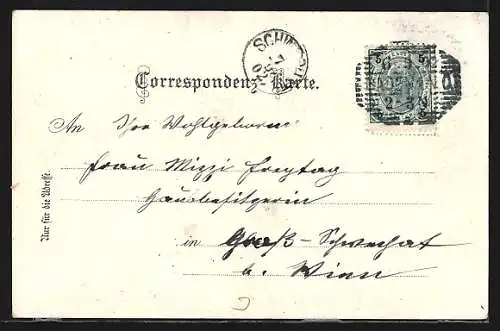 SCHW
Correspondenz-Karte.
5 5
An Ihre Wohlgeboren
Frau Mizzi Freytag
Hausbesitzerin
in Groß-Schwechat
b. Wien
Nur für die Adresse.